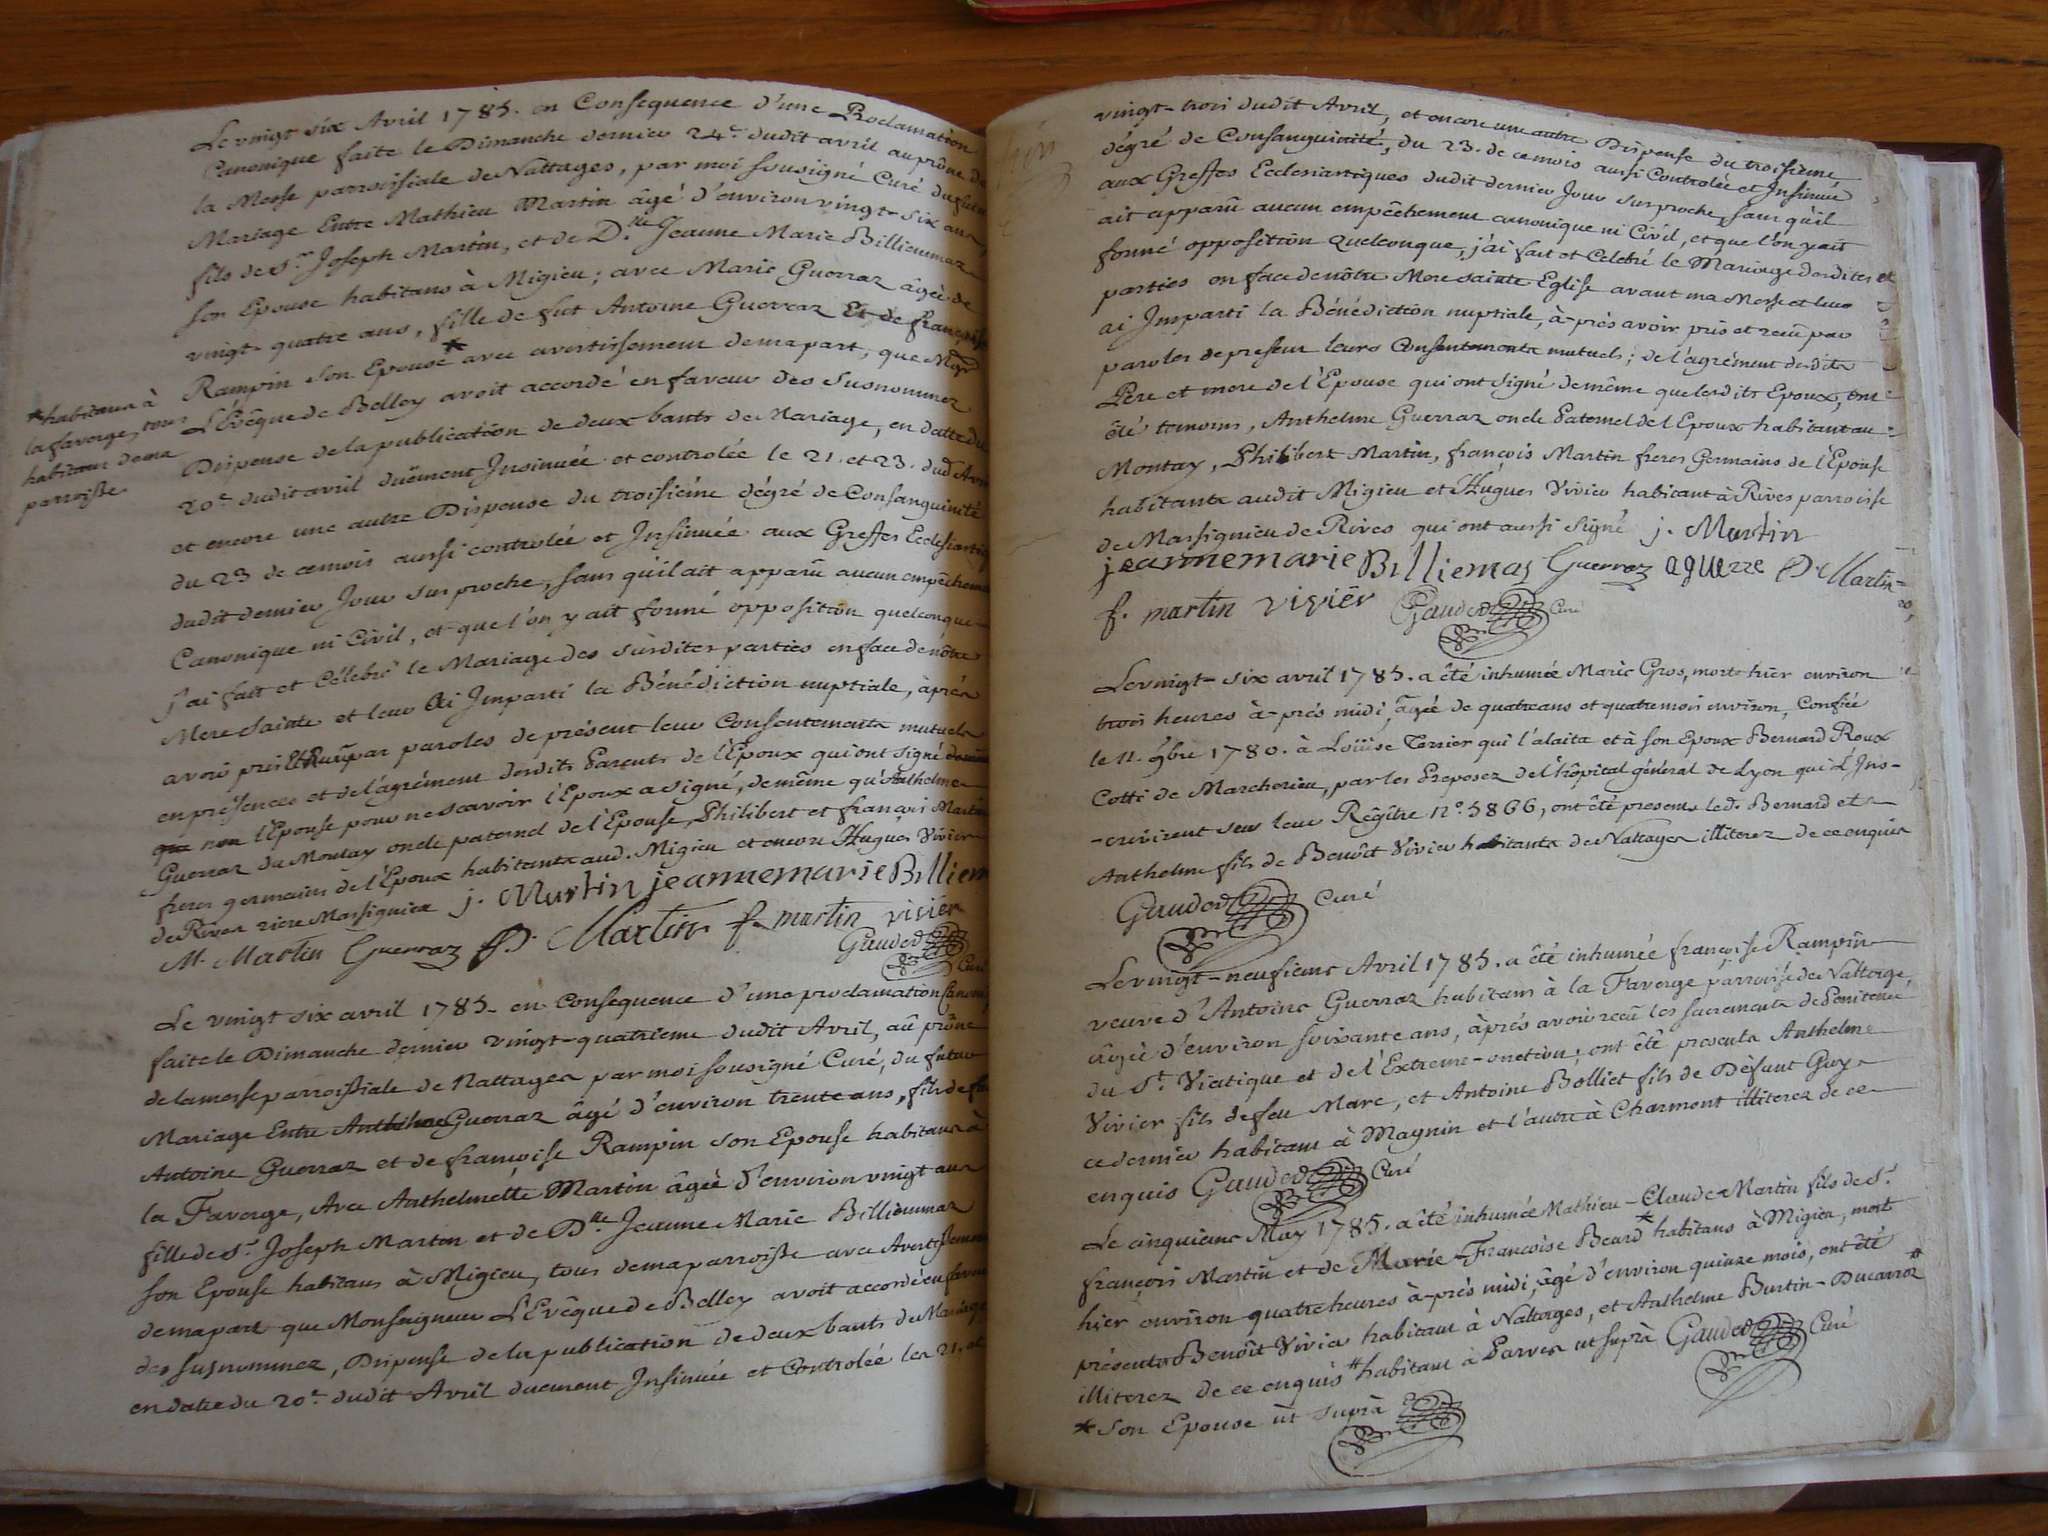 Le vingt six Avril 1785. en Consequence d'une Proclamation
Canonique faite le Dimanche dernier 24e. dudit avril au prône de
la Messe parroissiale de Nattages, par moi soussigné Curé du futur
Mariage Entre Mathieu Martin âgé d'environ vingt-six ans,
fils de Sr. Joseph Martin, et de Dlle Jeanne Marie Billiemmaz
son Epouse habitans à Migieu; avec Marie Guerraz âgée de
vingt-quatre ans, fille de fut Antoine Guerraz Et de françoise
Rampin son Epouse * avec avertissement de ma part, que Mgr
L'Evêque de Belley avoit accordé en faveur des Susnommez
Dispense de la publication de deux bants de Mariage, en datte du
20e. dudit avril duëment Insinuée et controlée le 21. et 23. dud. Avril
et encore une autre Dispense du troisiéme dégré de Consanguinité
du 23 de ce mois aussi controlée et Insinuée aux Greffes Ecclesiastiq
dudit dernier Jour sus proche, sans qu'il ait apparû aucun empêchement
Canonique ni Civil, et que l'on y ait formé opposition quelconque
j'ai fait et Célebré le Mariage des susdites parties en face de nôtre
Mere Sainte et leur Ai Imparti la Bénédiction nuptiale, àprés
avoir pris et Reçu par paroles de présent leur Consentements mutuels
en présences et de l'agrément desdits Parents de l'Epoux qui ont signé
non l'Epouse pour ne scavoir l'Epoux a signé, de même qu'Anthelme
Guerraz du Montay oncle paternel de l'Epouse, Philibert et françois Martin
freres germains de l'Epoux habitants aud. Migieu et encore Hugues Vivier
de Rives riere Massignieu j. Martin jeannemarie Billiem
M. Martin Guerraz P. Martin f. martin vivier
Gauded Curé
*habitans à
la faverge, tous
habitans de ma
parroisse
Le vingt six avril 1785. en Consequence d'une proclamation Canoni
faite le Dimanche dernier vingt-quatrieme dudit Avril, aû prône
de la messe parroissiale de Nattages par moi soussigné Curé, du futur
Mariage Entre Anthelme Guerraz âgé d'environ trente ans, fils de feu
Antoine Guerraz et de françoise Rampin son Epouse habitans à
la Faverge, Avec Anthelmette Martin âgée d'environ vingt ans
fille de Sr. Joseph Martin et de Dlle. Jeanne Marie Billiemmaz
son Epouse habitans à Migieu, tous de ma parroisse avec Avertissement
de ma part que Monseigneur L'Evêque de Belley avoit accordé en faveur
des susnommez, Dispense de la publication de deux bants de Mariage
en date du 20e. dudit Avril duement Insinuée et Controlée les 21. et
vingt-trois dudit Avril, et encore une autre Dispense du troisieme
dégré de Consanguinité, du 23. de ce mois aussi Controlée et Insinuée
aux Greffes Ecclesiastiques dudit dernier Jour sus proche, sans qu'il
ait apparû aucun empêchement canonique ni Civil, et que l'on y ait
formé opposition quelconque, j'ai fait et Celebré le Mariage desdites
parties en face de nôtre Mere sainte Eglise avant ma Messe et leur
ai Imparti la Bénédiction nuptiale, à-prés avoir pris et reçu par
paroles de present leurs Consentements mutuels; de l'agrément desdits
Père et mere de l'Epouse qui ont signé de même que lesdits Epoux, ont
été temoins, Anthelme Guerraz oncle Paternel de l'Epoux habitant au
Montay, Philibert Martin, françois Martin freres Germains de l'Epouse
habitants audit Migieu et Hugues Vivier habitant à Rives parroisse
de Massignieu de Rives qui ont aussi signé j. Martin
jeannemarie Billiemas Guerraz aguerre P. Martin
f. martin vivier Gauded Curé
Le vingt-six avril 1785. a été inhumée Marie Gros, morte hier environ
trois heures à-prés midi, âgée de quatre ans et quatre mois environ, Confiée
le 11. 9bre 1780. à Loüise Terrier qui l'alaita et à son Epoux Bernard Roux
Cotti de Marcherieu, par les Preposez de l'hôpital général de Lyon qui L'Ins-
-crivirent sous leur Régître n°. 5866, ont été presents led. Bernard et
Anthelme fils de Benoît Vivier habitants de Nattages illiterez de ce enquis
Gauded Curé
Le vingt-neufieme Avril 1785. a été inhumée françoise Rampin
veuve d'Antoine Guerraz habitans à la Faverge parroisse de Nattage,
âgée d'environ soixante ans, àprés avoir reçu les sacrements de Penitence
du St. Viatique et de l'Extreme-onction; ont été presents Anthelme
Vivier fils de feu Marc, et Antoine Bolliet fils de Défunt Guy
ce dernier habitant à Magnin et l'autre à Charmont illiterez de ce
enquis Gauded Curé
Le cinquieme May 1785. a été inhumée Mathieu-Claude Martin fils de Sr.
françois Martin et de Marie-Francoise Beard * habitans à Migieu, mort
hier environ quatre heures à-prés midi, âgé d'environ quinze mois, ont été
présents Benoît Vivier habitant à Nattages, et Anthelme Burtin-Ducarroz #
illiterez de ce enquis # habitant à Parves ut suprà Gauded Curé
* son Epouse ùt suprà